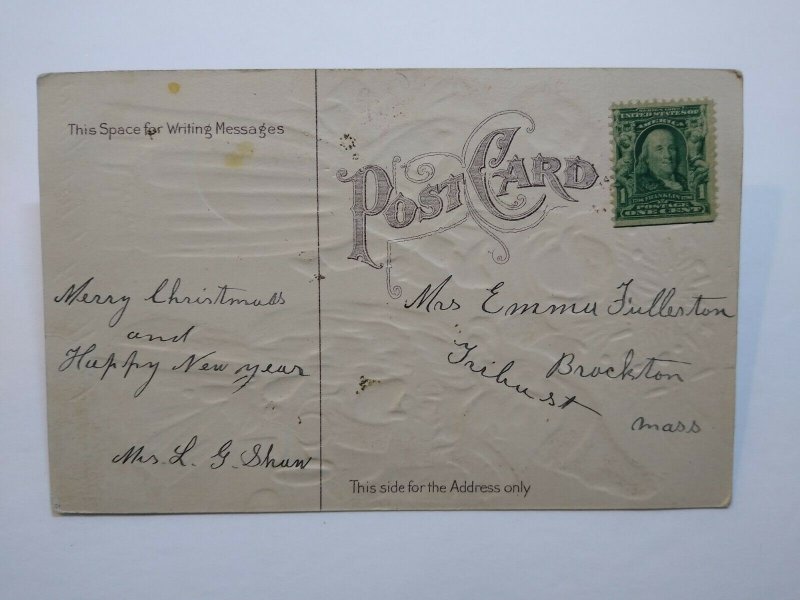 This Space for Writing Messages
POST CARD
SERIES 1902
UNITED STATES OF
AMERICA
1 FRANKLIN 1
POSTAGE
ONE CENT
Merry Christmass
and
Happy New year
Mrs. L. G. Shaw
Mrs Emma Fullerton
Brockton
mass
This side for the Address only